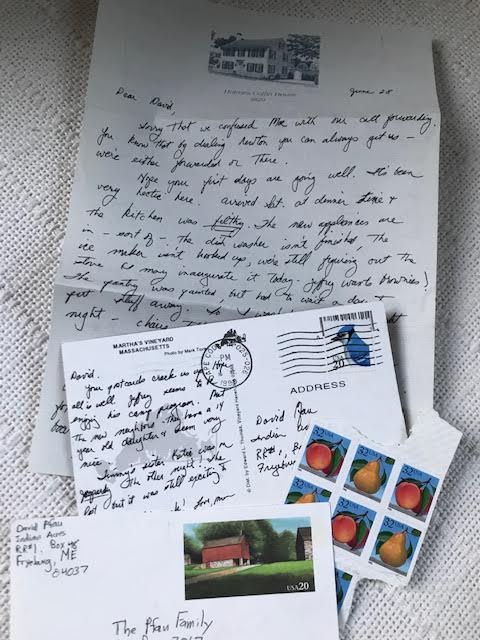 Holmes Coffin House
1829
June 28
Dear David,
Sorry that we confused Moe with our call forwarding.
You know that by dialing Newton you can always get us –
we're either forwarded or there.
Hope your first days are going well. It's been
very hectic here. arrived Sat. at dinner time &
the kitchen was filthy. The new appliances are
in – sort of –. The dish washer isn't finished, The
ice maker isn't hooked up, we're still figuring out the
stove so may inaugurate it today. Jffry wants brownies!
The pantry was painted, but had to wait a day to
put stuff away. So I
night – chaos
MARTHA'S VINEYARD
MASSACHUSETTS
Photo by Mark
CAPE COD
PM
USA
20
ADDRESS
David.
You postcards crack us up. Hope
all is well. Jffry seems to be
enjoying his camp program. Met
the new neighbors. They have a 14
year old daughter & seem very
nice.
Jimmy's sister Katie was on
Jeopardy the other night. She
lost but it was still exciting to
Love, Mom
David Pfau
Indian
RR#1, B
Fryeburg
32 USA
32 USA
32 USA
32 USA
32 USA
David Pfau
Indian Acres
RR#1, Box
Fryeburg, ME
04037
USA20
The Pfau Family